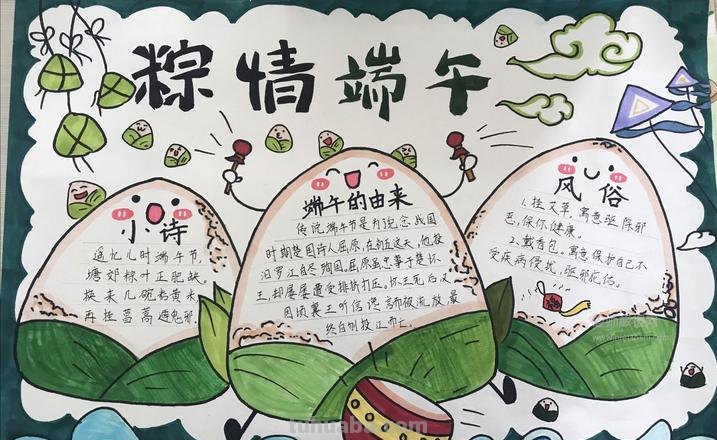 粽情端午
小诗
遥忆儿时端午节,
塘郊粽叶正肥缺.
换来几碗粘黄米,
再挂菖蒿避鬼邪.
端午的由来
传说端午节是为纪念战国
时期楚国诗人屈原,在初五这天,他投
汨罗江自尽殉国。屈原虽忠事于楚怀
王,却屡屡遭受排挤打压。怀王死后又
因顷襄王听信谗言而被流放,最
终自刎投江而亡。
风俗
1.挂艾草,寓意驱除邪
恶,保你健康。
2.戴香包,寓意保护自己不
受疾病侵扰,驱邪庇佑。